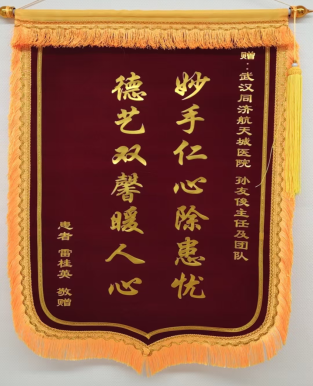 赠：武汉同济航天城医院 孙友俊主任及团队
妙手仁心除患忧
德艺双馨暖人心
患者 雷桂英 敬赠